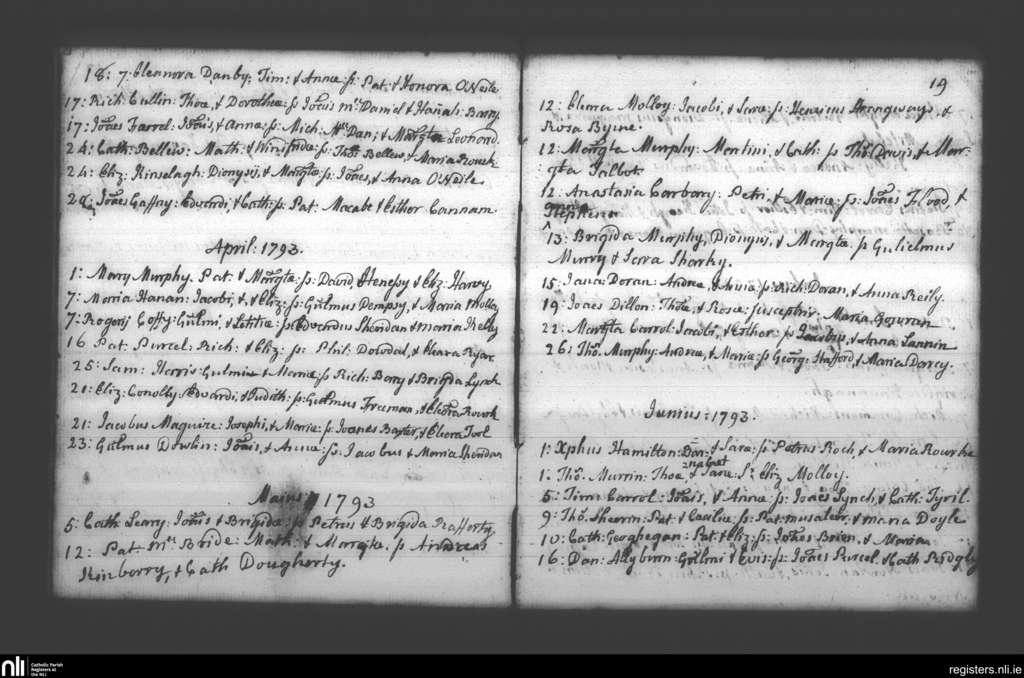 18: 7: Eleanora Danby: Tim: & Annæ: p: Pat: & Honora O'Neile
17: Rich: Cullin: Thoæ, & Dorotheæ: p: Joãis mc Daniel & Hañah: Barry
17: Joães Farrel: Joãis, & Anna: p: Mich: Dan: & Margta Leonord.
24: Cath: Bellew: Math: & Winifridæ: p: Thos Bellew, & Maria Rourk
24: Eliz: Kinselagh: Dionysii, & Margtæ: p: Joães, & Anna O'Neile
28: Joães Gaffny: Edvardi, & Cath: p: Pat: Macabe & Esther Cannam
April: 1793.
1: Mary Murphy. Pat & Margtæ: p: David Henessy & Eliz: Harvy
7: Maria Hanan: Jacobi, & Eliz: p: Gulmus Dempsy, & Maria Molloy
7: Rogerij Coffy: Gulmi, & Letitiæ: p: Edvardus Sheridan & Maria Kelly
16 Pat: Purcel: Rich: & Eliz: p: Phil: Dowdal, & Cleara Ryan
25: Sam: Harris: Gulmi & Mariæ: p: Rich: Barry & Brigida Lynch
21: Eliz: Conolly: Edvardi, & Judith: p: Gulmus Freeman, & Cleara Rourk
21: Jacobus Maguire: Josephi, & Mariæ: p: Joanes Baxter, & Cleara Tool
23: Gulmus Dowlin: Joãis, & Annæ: p: Jacobus & Maria Sheridan
Maius 1793
5: Cath: Leary: Joãis & Brigidæ: p: Petrus & Brigida Rafferty
12: Pat: Mc Bride: Math: & Margtæ. p: Andreas
Kinborry, & Cath Dougherty.
19
12: Cleara Molloy: Jacobi, & Saræ: p: Henricus Strangways, &
Rosa Byrne.
12: Margta Murphy: Martini, & Cath: p: Tho: Davis, & Mar-
gta Talbot.
12 Anastasia Carbary: Petri, & Mariæ: p: Joães Flood, &
Stephens
13: Brigida Murphy, Dionysii, & Margtæ. p: Gulielmus
Murry & Sarra Sharky.
15: Jana Doran: Andreæ, & Anna: p: Rich: Doran, & Anna Reily.
19: Joaes Dillon: Thoæ, & Rosæ: susceptrix: Maria
22: Margta Carrol: Jacobi, & Esther: p: Jacobus, & Anna Lannin
26: Tho: Murphy: Andreæ, & Mariæ: p: Georg: Stafford & Maria Darcy.
Junius: 1793.
1: Xphus Hamilton: Dan: & Sara: p: Petrus Roch, & Maria Rourke
1: Tho: Murrin: Thoæ, & Janæ: Eliz Molloy.
5: Tim: Carrol: Joãis, & Annæ: p: Joães Lynch, & Cath: Tyril.
9: Tho: Sherrin: Pat: & Ceciliæ: p: Pat: & Maria Doyle
10: Cath: Geoghegan: Pat: & Eliz: p: Joães Brien, & Maria
16: Dan: Allyburn: p: Joães Purcel. & Cath Ridgly
nli
Catholic Parish
Registers at
the NLI
registers.nli.ie